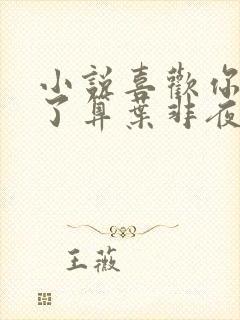 小說喜歡你
了算葉非夜
王薇